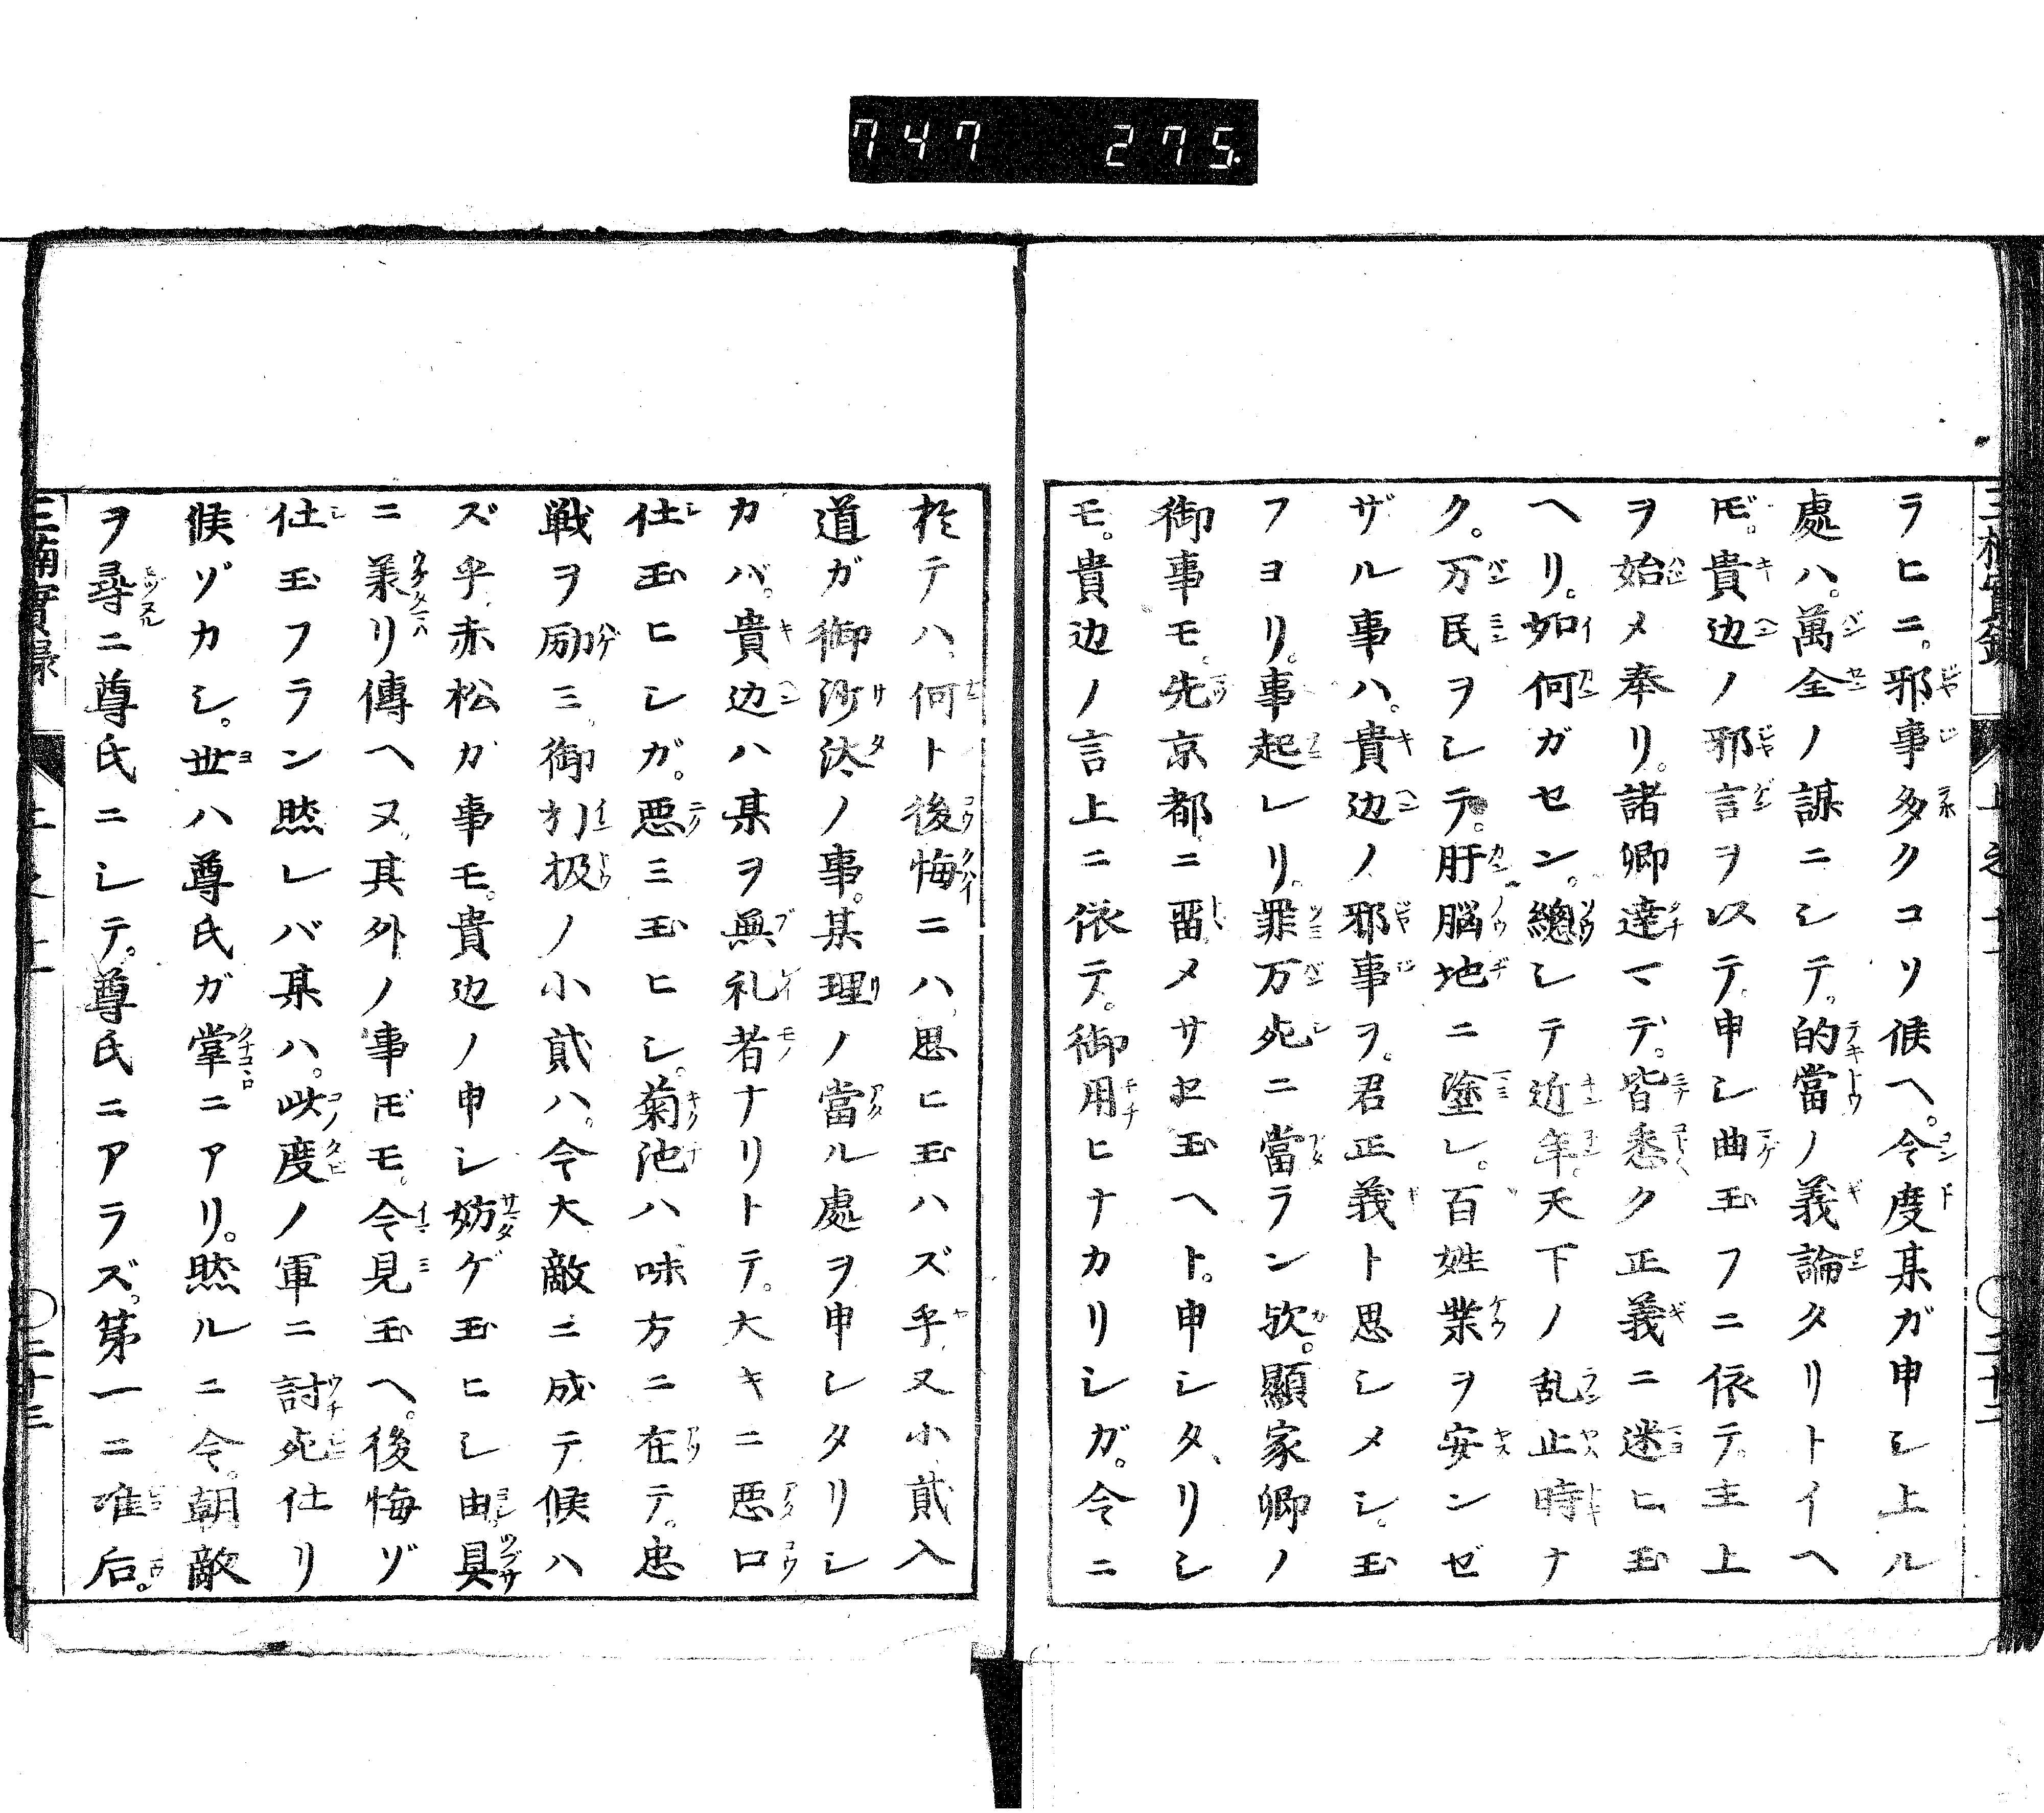 747 275.
ラヒニ。邪事多クコリ候ヘ。今度某ガ申シ上ル
處ハ。萬全ノ謀ニシテ。的當ノ義論タリトイヘ
𪜈。貴辺ノ邪言ヲ以テ。申シ曲玉フニ依テ。主上
ヲ始メ奉リ。諸卿達マデ。皆悉ク正義ニ迷ヒ玉
ヘリ。如何ガセン。總シテ近年。天下ノ乱止時ナ
ク。万民ヲシテ。肝脳地ニ塗レ。百姓業ヲ安ンゼ
ザル事ハ。貴辺ノ邪事ヲ。君正義ト思シメシ。玉
フヨリ。事起レリ。罪万死ニ當ラン欤。顯家卿ノ
御事モ。先京都ニ畱メサセ玉ヘト。申シタリシ
モ。貴辺ノ言上ニ依テ。御用ヒナカリシガ。今ニ
於テハ。何ト後悔ニハ。思ヒ玉ハズ乎。又小貳入
道ガ御沙汰ノ事。某理ノ當ル處ヲ申シタリシ
カバ。貴辺ハ某ヲ無礼者ナリトテ。大キニ悪口
仕玉ヒシガ。悪ミ玉ヒシ。菊池ハ味方ニ在テ。忠
戦ヲ励ミ。御引扱ノ小貳ハ。今大敵ニ成テ候ハ
ズ乎。赤松ガ事モ。貴辺ノ申シ妨ゲ玉ヒシ由。具
ニ羕リ傳ヘヌ。其外ノ事𪜈モ。今見玉ヘ。後悔ゾ
仕玉フラン。然レバ某ハ。此度ノ軍ニ討死仕リ
候ゾカシ。世ハ尊氏ガ掌ニアリ。然ルニ今。朝敵
ヲ尋ニ尊氏ニシテ。尊氏ニアラズ。第一ニ准后。
三楠實録
二十三